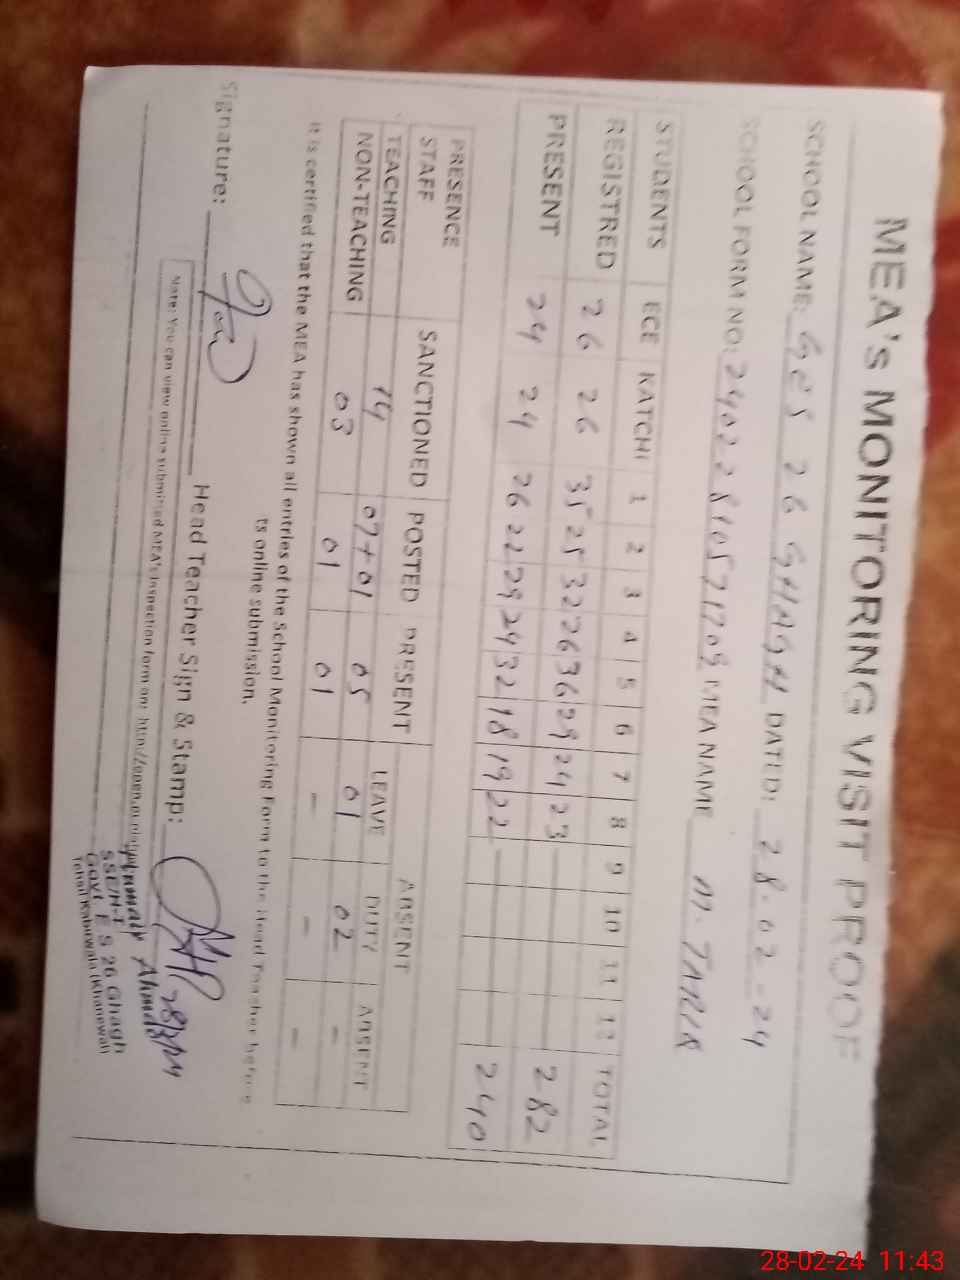 MEA's MONITORING VISIT PROOF
SCHOOL NAME: GES 26 GHAGH DATED: 28.02-24
SCHOOL FORM NO: MEA NAME M. TARIQ
STUDENTS ECE KATCHI 1 2 3 4 5 6 7 8 9 10 11 12 TOTAL
REGISTRED 26 26 35 25 32 26 36 29 24 23 282
PRESENT 24 24 26 22 29 24 32 18 19 22 240
PRESENCE ABSENT
STAFF SANCTIONED POSTED PRESENT LEAVE DUTY ABSENT
TEACHING 14 07+01 05 01 02 -
NON-TEACHING 03 01 01 - - -
It is certified that the MEA has shown all entries of the School Monitoring Form to the Head Teacher before
its online submission.
Signature: Head Teacher Sign & Stamp:
Note: You can view online submitted MEA's inspection form on: http://open.
Ahmad
SSE/H-T
Govt. E S 26 Ghagh
Tehsil Kabirwala (Khanewal)
28-02-24 11:43